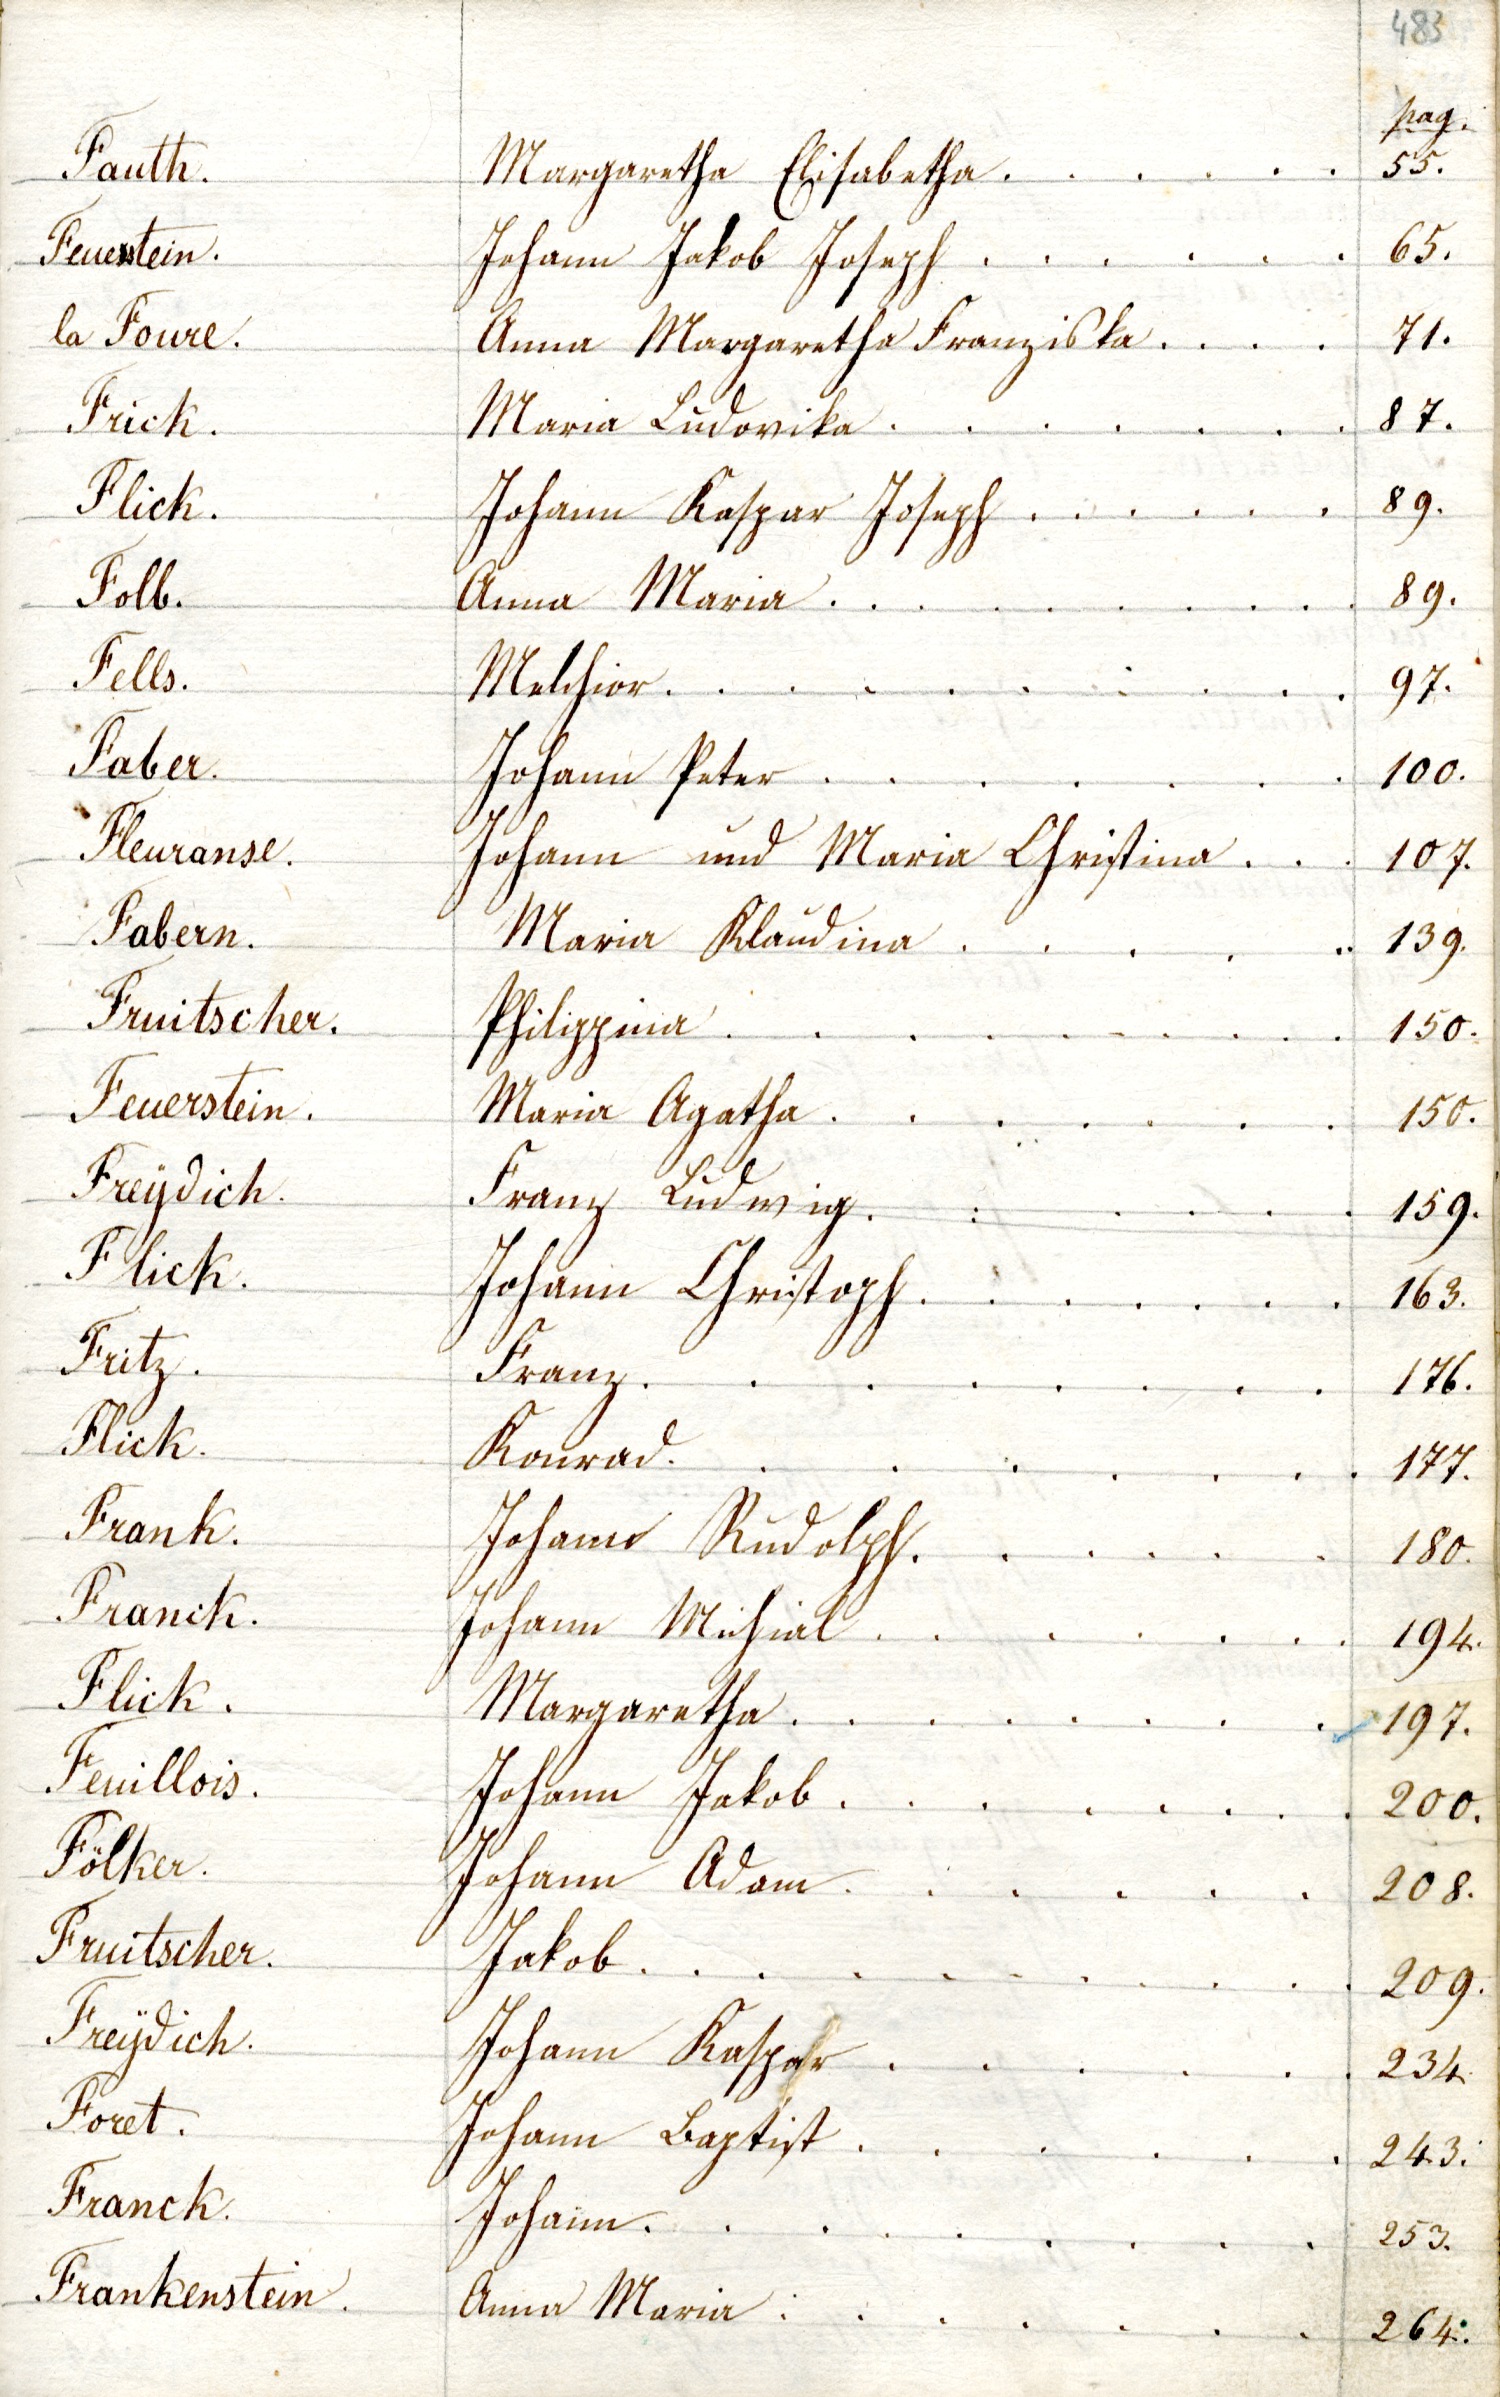 483
pag.
Fauth. Margaretha Elisabetha . . . . . . 55.
Feuerstein. Johann Jakob Joseph . . . . . . 65.
la Foure. Anna Margaretha Franziska . . . . 71.
Frick. Maria Ludovika . . . . . . . 87.
Flick. Johann Kaspar Joseph . . . . . . 89.
Folb. Anna Maria . . . . . . . . 89.
Fells. Melchior . . . . . . . . . 97.
Faber. Johann Peter . . . . . . . 100.
Fleuranse. Johann und Maria Christina . . . 107.
Fabern. Maria Klaudina . . . . . 139.
Fruitscher. Philippina . . . . . . . . 150.
Feuerstein. Maria Agatha . . . . . . . 150.
Freÿdich. Franz Ludwig . . . . . . 159.
Flick. Johann Christoph . . . . . . . 163.
Fritz. Franz . . . . . . . . 176.
Flick. Konrad . . . . . . . . 177.
Frank. Johann Rudolph . . . . . . 180.
Franck. Johann Michial . . . . . . . 194.
Flick. Margaretha . . . . . . . . 197.
Feuillois. Johann Jakob . . . . . . . . 200.
Fölker. Johann Adam . . . . . . 208.
Fruitscher. Jakob . . . . . . . . . . 209.
Freÿdich. Johann Kaspar . . . . . . . 234.
Foret. Johann Baptist . . . . . . 243.
Franck. Johann . . . . . . . . 253.
Frankenstein. Anna Maria . . . . . . . 264.